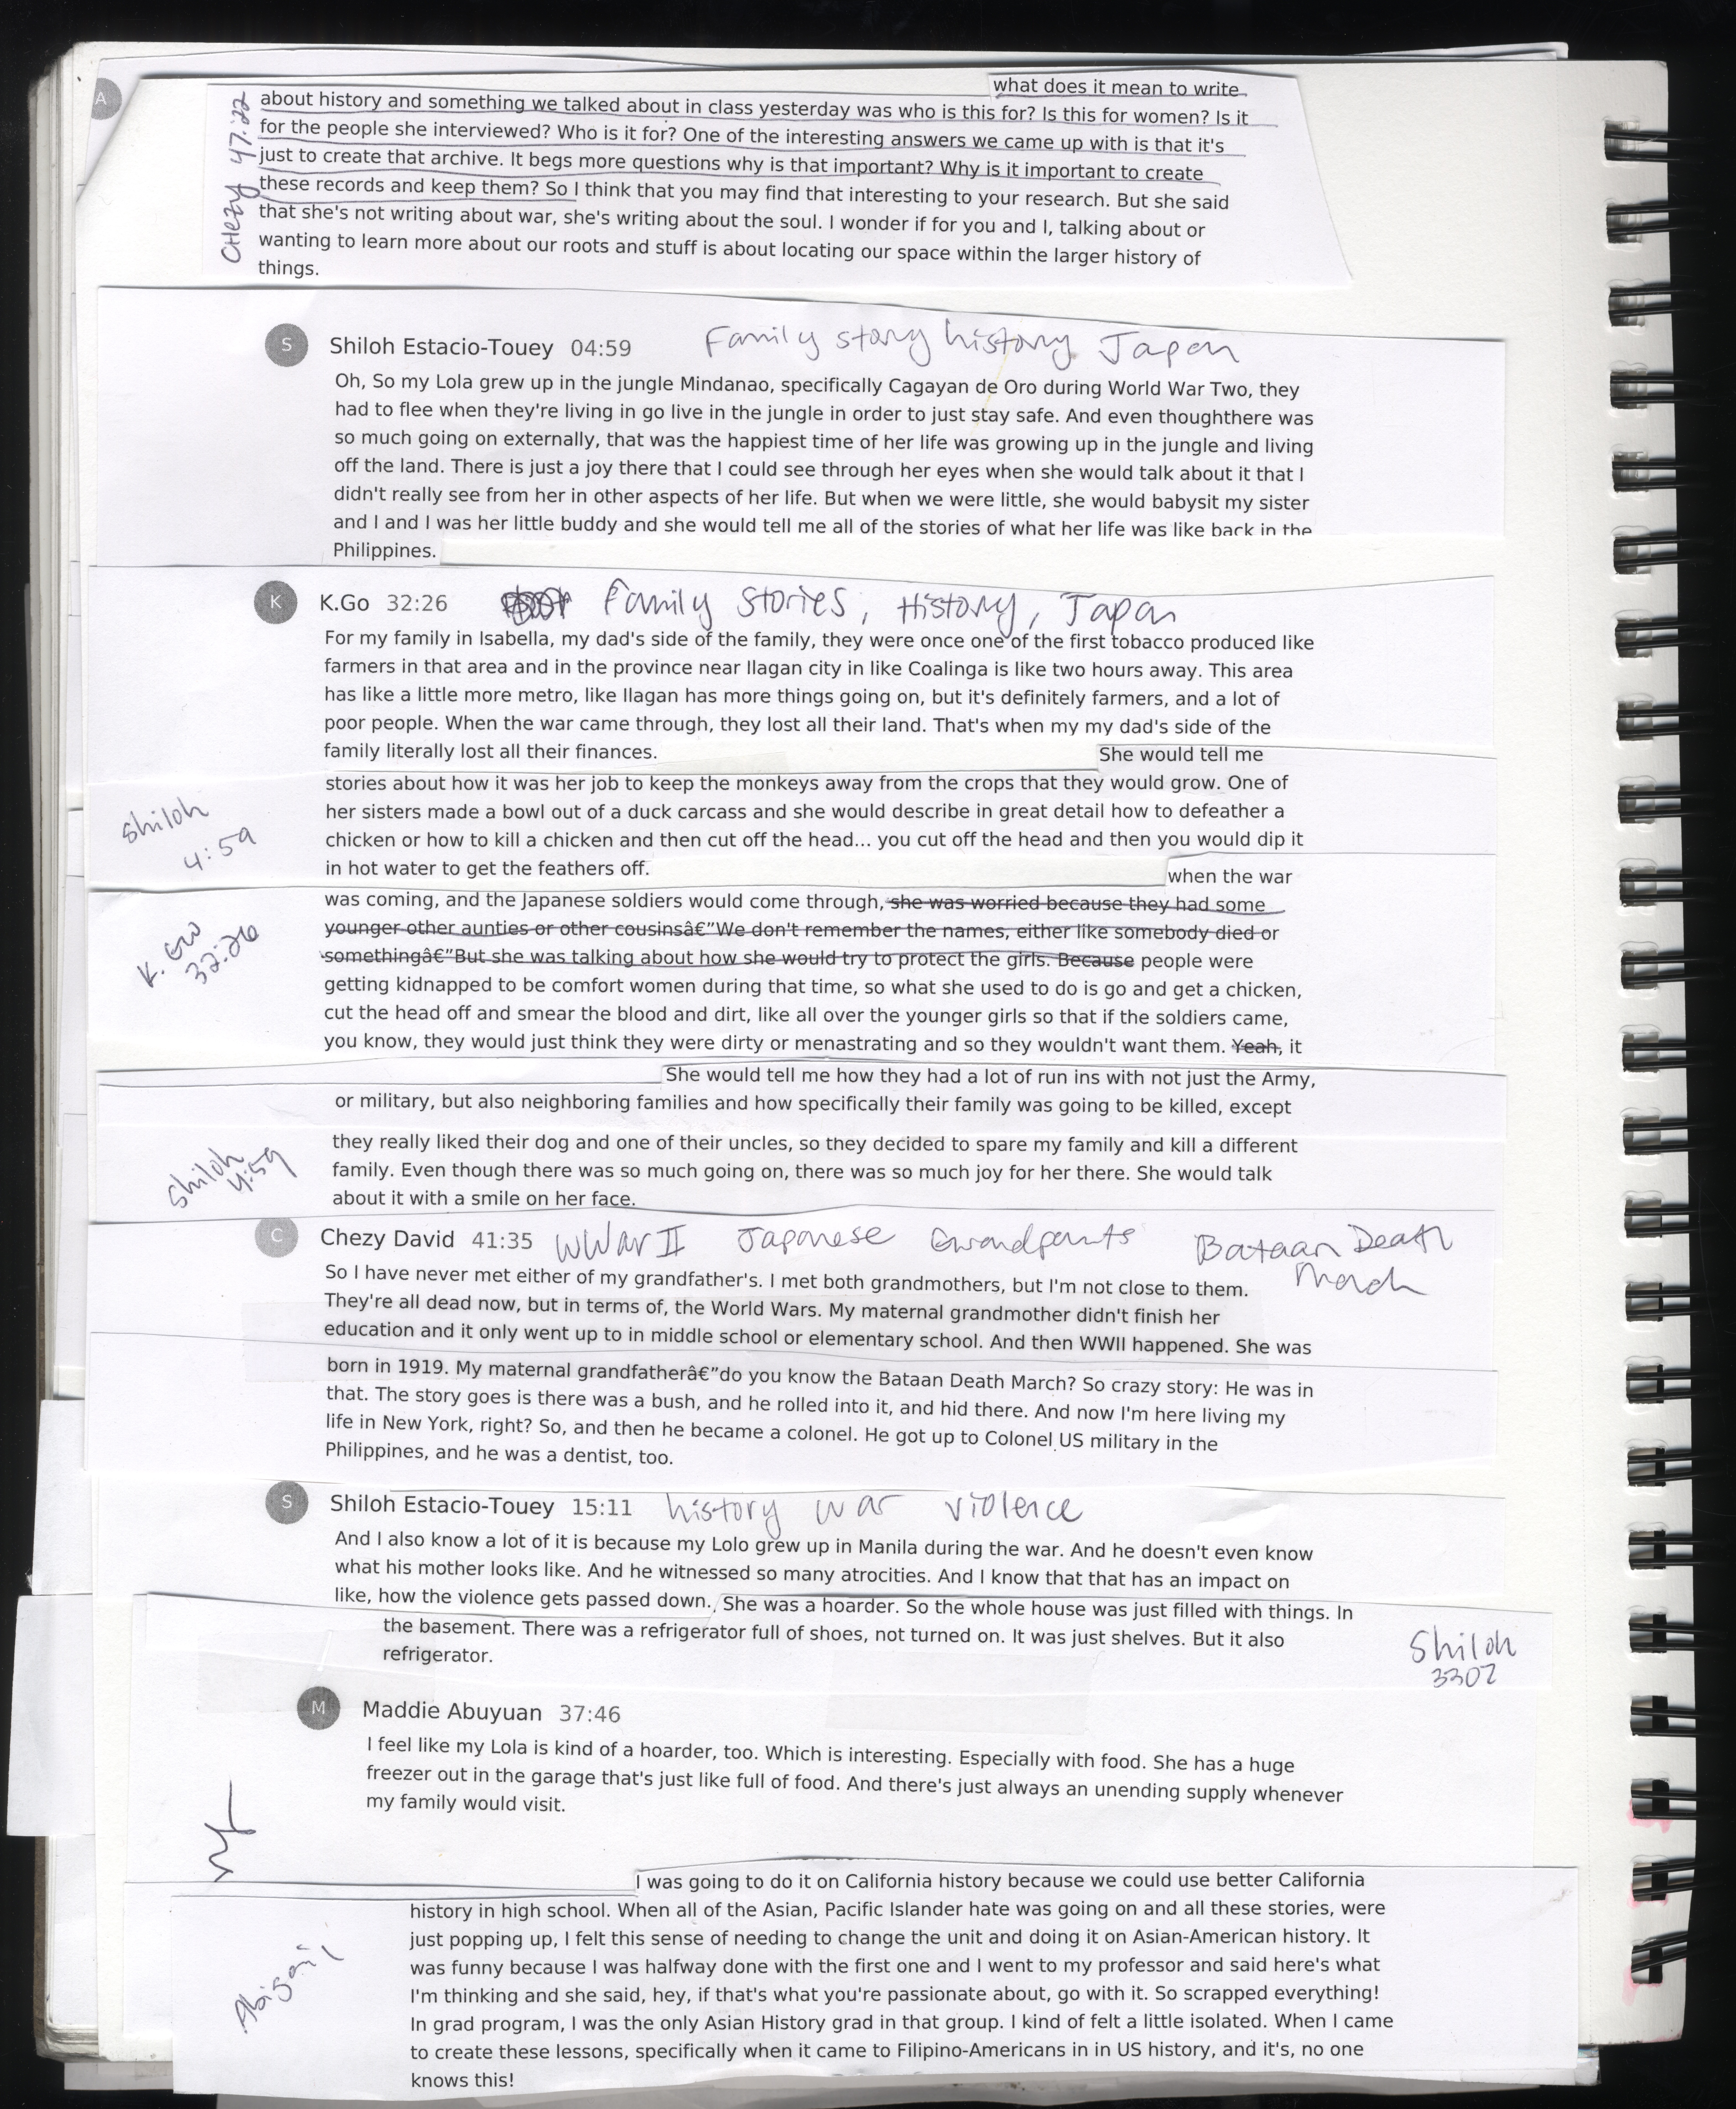 A
what does it mean to write
about history and something we talked about in class yesterday was who is this for? Is this for women? Is it
for the people she interviewed? Who is it for? One of the interesting answers we came up with is that it's
just to create that archive. It begs more questions why is that important? Why is it important to create
these records and keep them? So I think that you may find that interesting to your research. But she said
that she's not writing about war, she's writing about the soul. I wonder if for you and I, talking about or
wanting to learn more about our roots and stuff is about locating our space within the larger history of
things.
CHezy 47:22
S Shiloh Estacio-Touey 04:59 Family story history Japan
Oh, So my Lola grew up in the jungle Mindanao, specifically Cagayan de Oro during World War Two, they
had to flee when they're living in go live in the jungle in order to just stay safe. And even thoughthere was
so much going on externally, that was the happiest time of her life was growing up in the jungle and living
off the land. There is just a joy there that I could see through her eyes when she would talk about it that I
didn't really see from her in other aspects of her life. But when we were little, she would babysit my sister
and I and I was her little buddy and she would tell me all of the stories of what her life was like back in the
Philippines.
K K.Go 32:26 Family Stories, History, Japan
For my family in Isabella, my dad's side of the family, they were once one of the first tobacco produced like
farmers in that area and in the province near Ilagan city in like Coalinga is like two hours away. This area
has like a little more metro, like Ilagan has more things going on, but it's definitely farmers, and a lot of
poor people. When the war came through, they lost all their land. That's when my my dad's side of the
family literally lost all their finances.
She would tell me
stories about how it was her job to keep the monkeys away from the crops that they would grow. One of
her sisters made a bowl out of a duck carcass and she would describe in great detail how to defeather a
chicken or how to kill a chicken and then cut off the head... you cut off the head and then you would dip it
in hot water to get the feathers off.
Shiloh
4:59
when the war
was coming, and the Japanese soldiers would come through, she was worried because they had some
younger other aunties or other cousinsâ€”We don't remember the names, either like somebody died or
somethingâ€”But she was talking about how she would try to protect the girls. Because people were
getting kidnapped to be comfort women during that time, so what she used to do is go and get a chicken,
cut the head off and smear the blood and dirt, like all over the younger girls so that if the soldiers came,
you know, they would just think they were dirty or menastrating and so they wouldn't want them. Yeah, it
K. Go
32:26
She would tell me how they had a lot of run ins with not just the Army,
or military, but also neighboring families and how specifically their family was going to be killed, except
they really liked their dog and one of their uncles, so they decided to spare my family and kill a different
family. Even though there was so much going on, there was so much joy for her there. She would talk
about it with a smile on her face.
Shiloh
4:59
C Chezy David 41:35 WWar II Japanese Grandparnts Bataan Death
March
So I have never met either of my grandfather's. I met both grandmothers, but I'm not close to them.
They're all dead now, but in terms of, the World Wars. My maternal grandmother didn't finish her
education and it only went up to in middle school or elementary school. And then WWII happened. She was
born in 1919. My maternal grandfatherâ€”do you know the Bataan Death March? So crazy story: He was in
that. The story goes is there was a bush, and he rolled into it, and hid there. And now I'm here living my
life in New York, right? So, and then he became a colonel. He got up to Colonel US military in the
Philippines, and he was a dentist, too.
S Shiloh Estacio-Touey 15:11 history war violence
And I also know a lot of it is because my Lolo grew up in Manila during the war. And he doesn't even know
what his mother looks like. And he witnessed so many atrocities. And I know that that has an impact on
like, how the violence gets passed down. She was a hoarder. So the whole house was just filled with things. In
the basement. There was a refrigerator full of shoes, not turned on. It was just shelves. But it also
refrigerator.
Shiloh
3302
M Maddie Abuyuan 37:46
I feel like my Lola is kind of a hoarder, too. Which is interesting. Especially with food. She has a huge
freezer out in the garage that's just like full of food. And there's just always an unending supply whenever
my family would visit.
I was going to do it on California history because we could use better California
history in high school. When all of the Asian, Pacific Islander hate was going on and all these stories, were
just popping up, I felt this sense of needing to change the unit and doing it on Asian-American history. It
was funny because I was halfway done with the first one and I went to my professor and said here's what
I'm thinking and she said, hey, if that's what you're passionate about, go with it. So scrapped everything!
In grad program, I was the only Asian History grad in that group. I kind of felt a little isolated. When I came
to create these lessons, specifically when it came to Filipino-Americans in in US history, and it's, no one
knows this!
Abigail